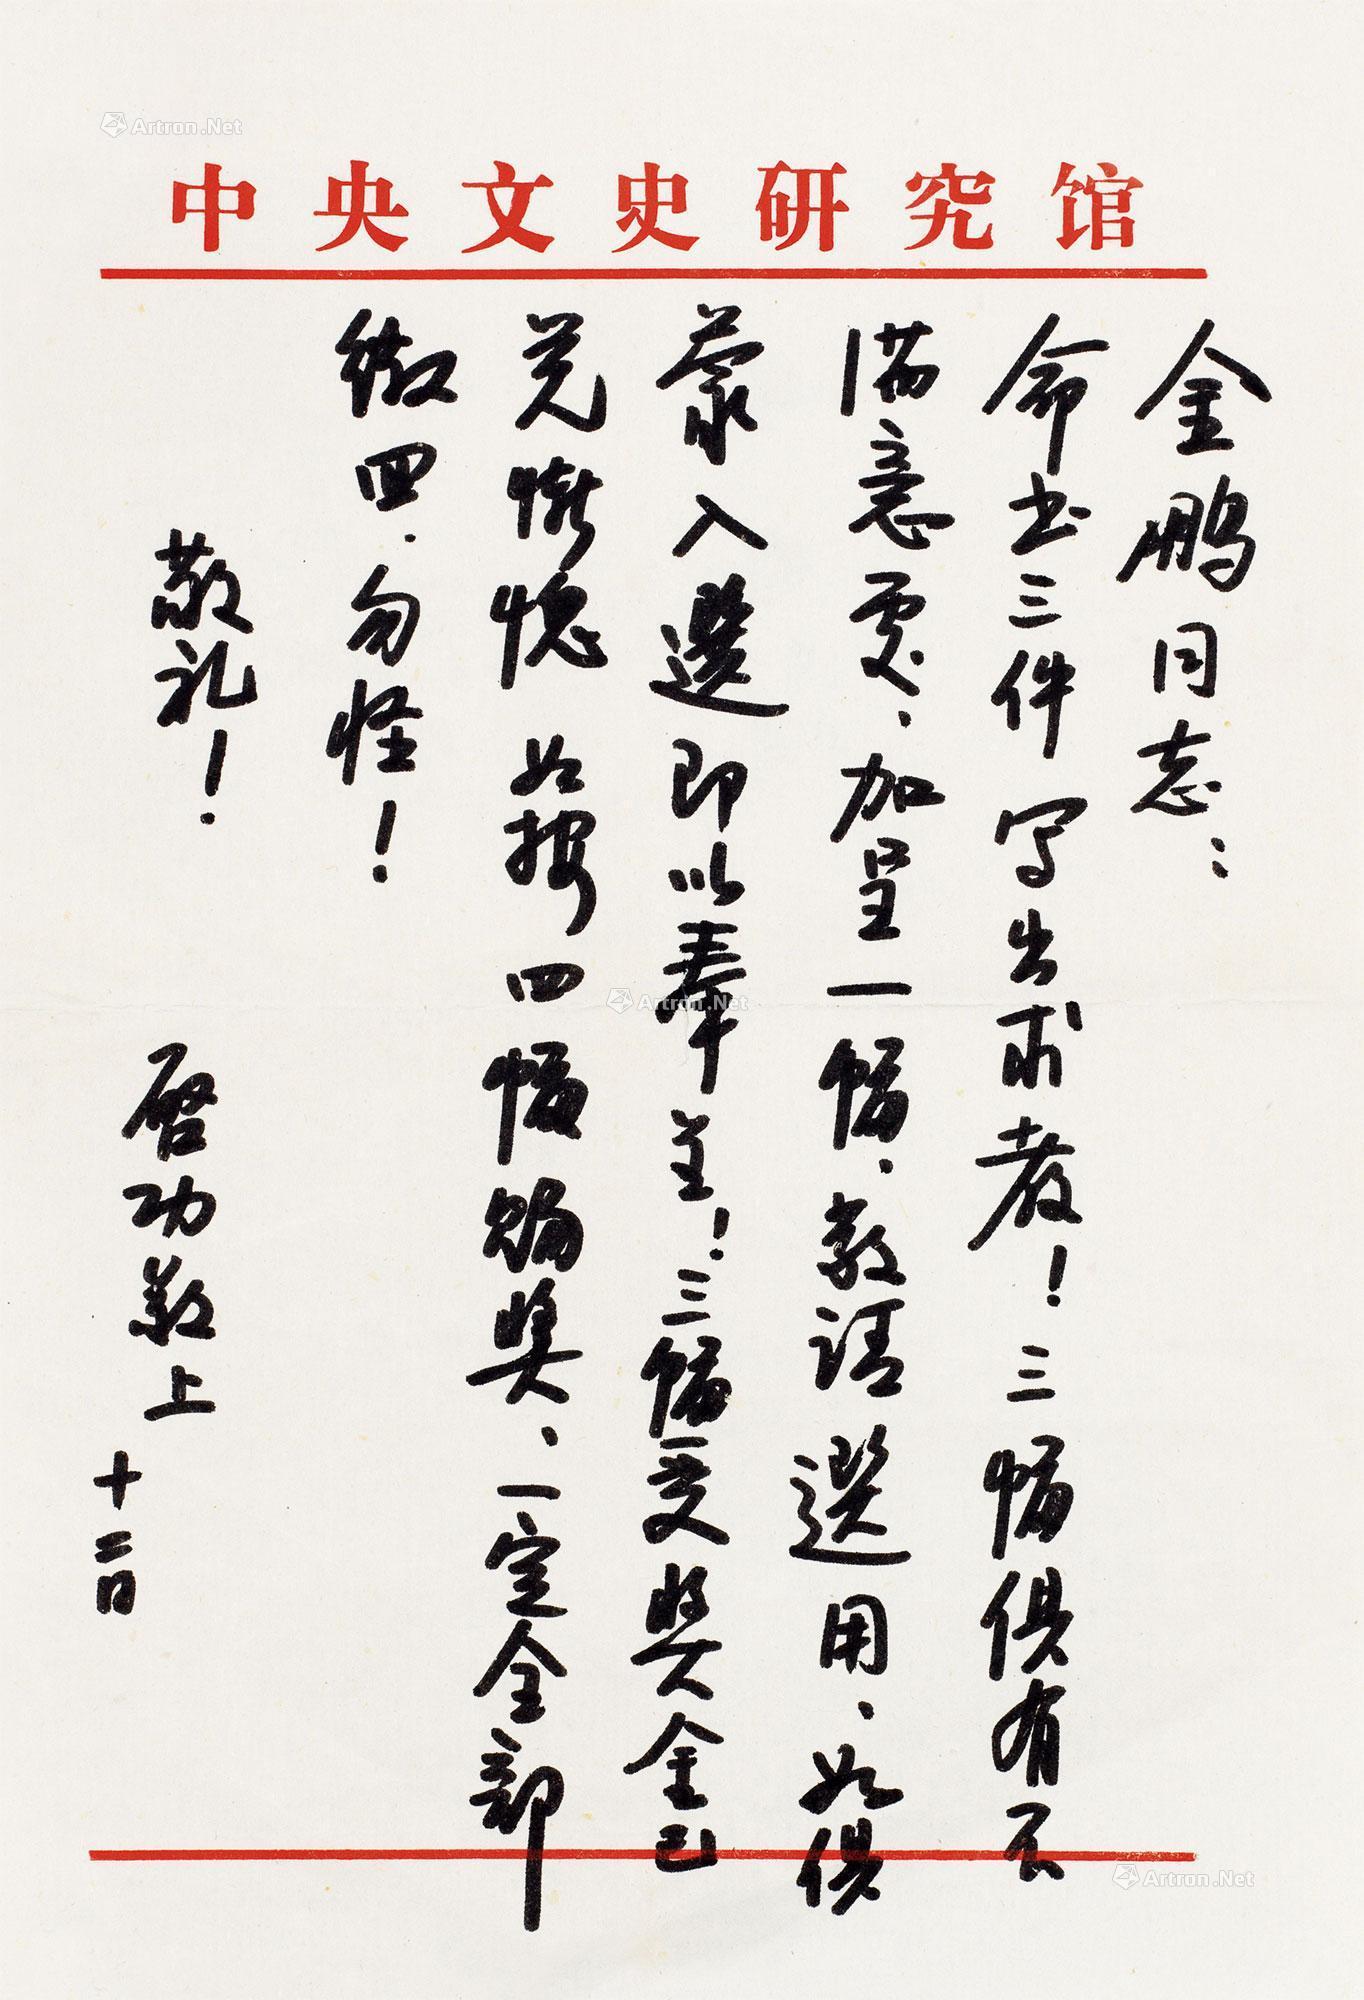 中央文史研究馆
金鹏同志：
命书三件写出求教！三幅俱有不
满意處、加呈一幅．敬请選用、如俱
蒙入選即以奉呈！三幅受奖金已
觉惭愧 如按四幅赐奖、一定全部
缴回．勿怪！
敬礼！
启功敬上
十二日
Artron.Net
Artron.Net
Artron.Net